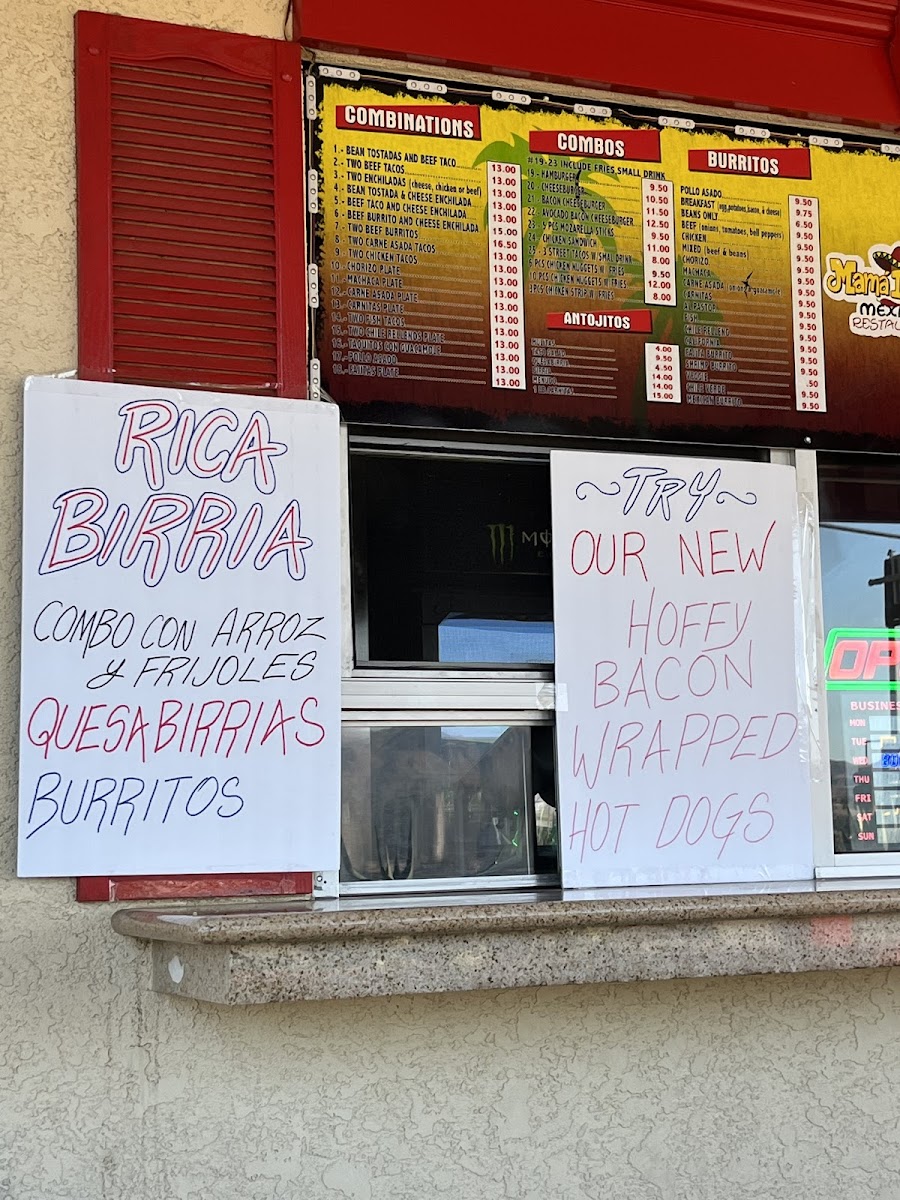 COMBINATIONS
1.- BEAN TOSTADAS AND BEEF TACO
2.- TWO BEEF TACOS
3.- TWO ENCHILADAS (cheese, chicken or beef)
4.- BEAN TOSTADA & CHEESE ENCHILADA
5.- BEEF TACO AND CHEESE ENCHILADA
6.- BEEF BURRITO AND CHEESE ENCHILADA
7.- TWO BEEF BURRITOS
8.- TWO CARNE ASADA TACOS
9.- TWO CHICKEN TACOS
10.- CHORIZO PLATE
11.- MACHACA PLATE
12.- CARNE ASADA PLATE
13.- CARNITAS PLATE
14.- TWO FISH TACOS
15.- TWO CHILE RELLENOS PLATE
16.- TAQUITOS CON GUACAMOLE
17.- POLLO ASADO
18.- FAJITAS PLATE
13.00
13.00
13.00
13.00
13.00
15.00
16.50
13.00
13.00
13.00
13.00
13.00
13.00
13.00
13.00
13.00
13.00
13.00
COMBOS
#19-23 INCLUDE FRIES, SMALL DRINK
19 - HAMBURGER
20 - CHEESEBURGER
21 - BACON CHEESEBURGER
22. AVOCADO BACON CHEESEBURGER
23 - 5 PCS MOZARELLA STICKS
24 - CHICKEN SANDWICH
25 - 3 STREET TACOS W SMAL DRINK
6 PCS CHICKEN NUGGETS W/ FRIES
10 PCS CHICKEN NUGGETS W/ FRIES
3PCS CHICKEN STRIP W/ FRIES
9.50
10.50
11.50
12.50
9.50
11.00
8.00
9.50
12.00
8.00
ANTOJITOS
4.00
9.50
4.50
14.00
14.00
15.00
BURRITOS
POLLO ASADO
BREAKFAST (egg,potatoes,bacon, & cheese)
BEANS ONLY
BEEF (onions, tomatoes, bell peppers)
CHICKEN
MIXED (beef & beans)
CHORIZO
MACHACA
CARNE ASADA
CARNITAS
AL PASTOR
FISH
CHILE RELLENO
CALIFORNIA
FAJITA BURRITO
SHRIMP BURRITO
VEGGIE
CHILE VERDE
MEXICAN BURRITO
9.50
9.75
6.50
9.50
9.50
9.50
9.50
9.50
9.50
9.50
9.50
9.50
9.50
9.50
9.50
9.50
9.50
.50
9.50
Mama
MEXI
RESTAU
RICA
BIRRIA
COMBO CON ARROZ
y FRIJOLES
QUESABIRRIAS
BURRITOS
~TRY~
OUR NEW
HOFFY
BACON
WRAPPED
HOT DOGS
OP
BUSINES
MON
TUE
WED
THU
FRI
SAT
SUN